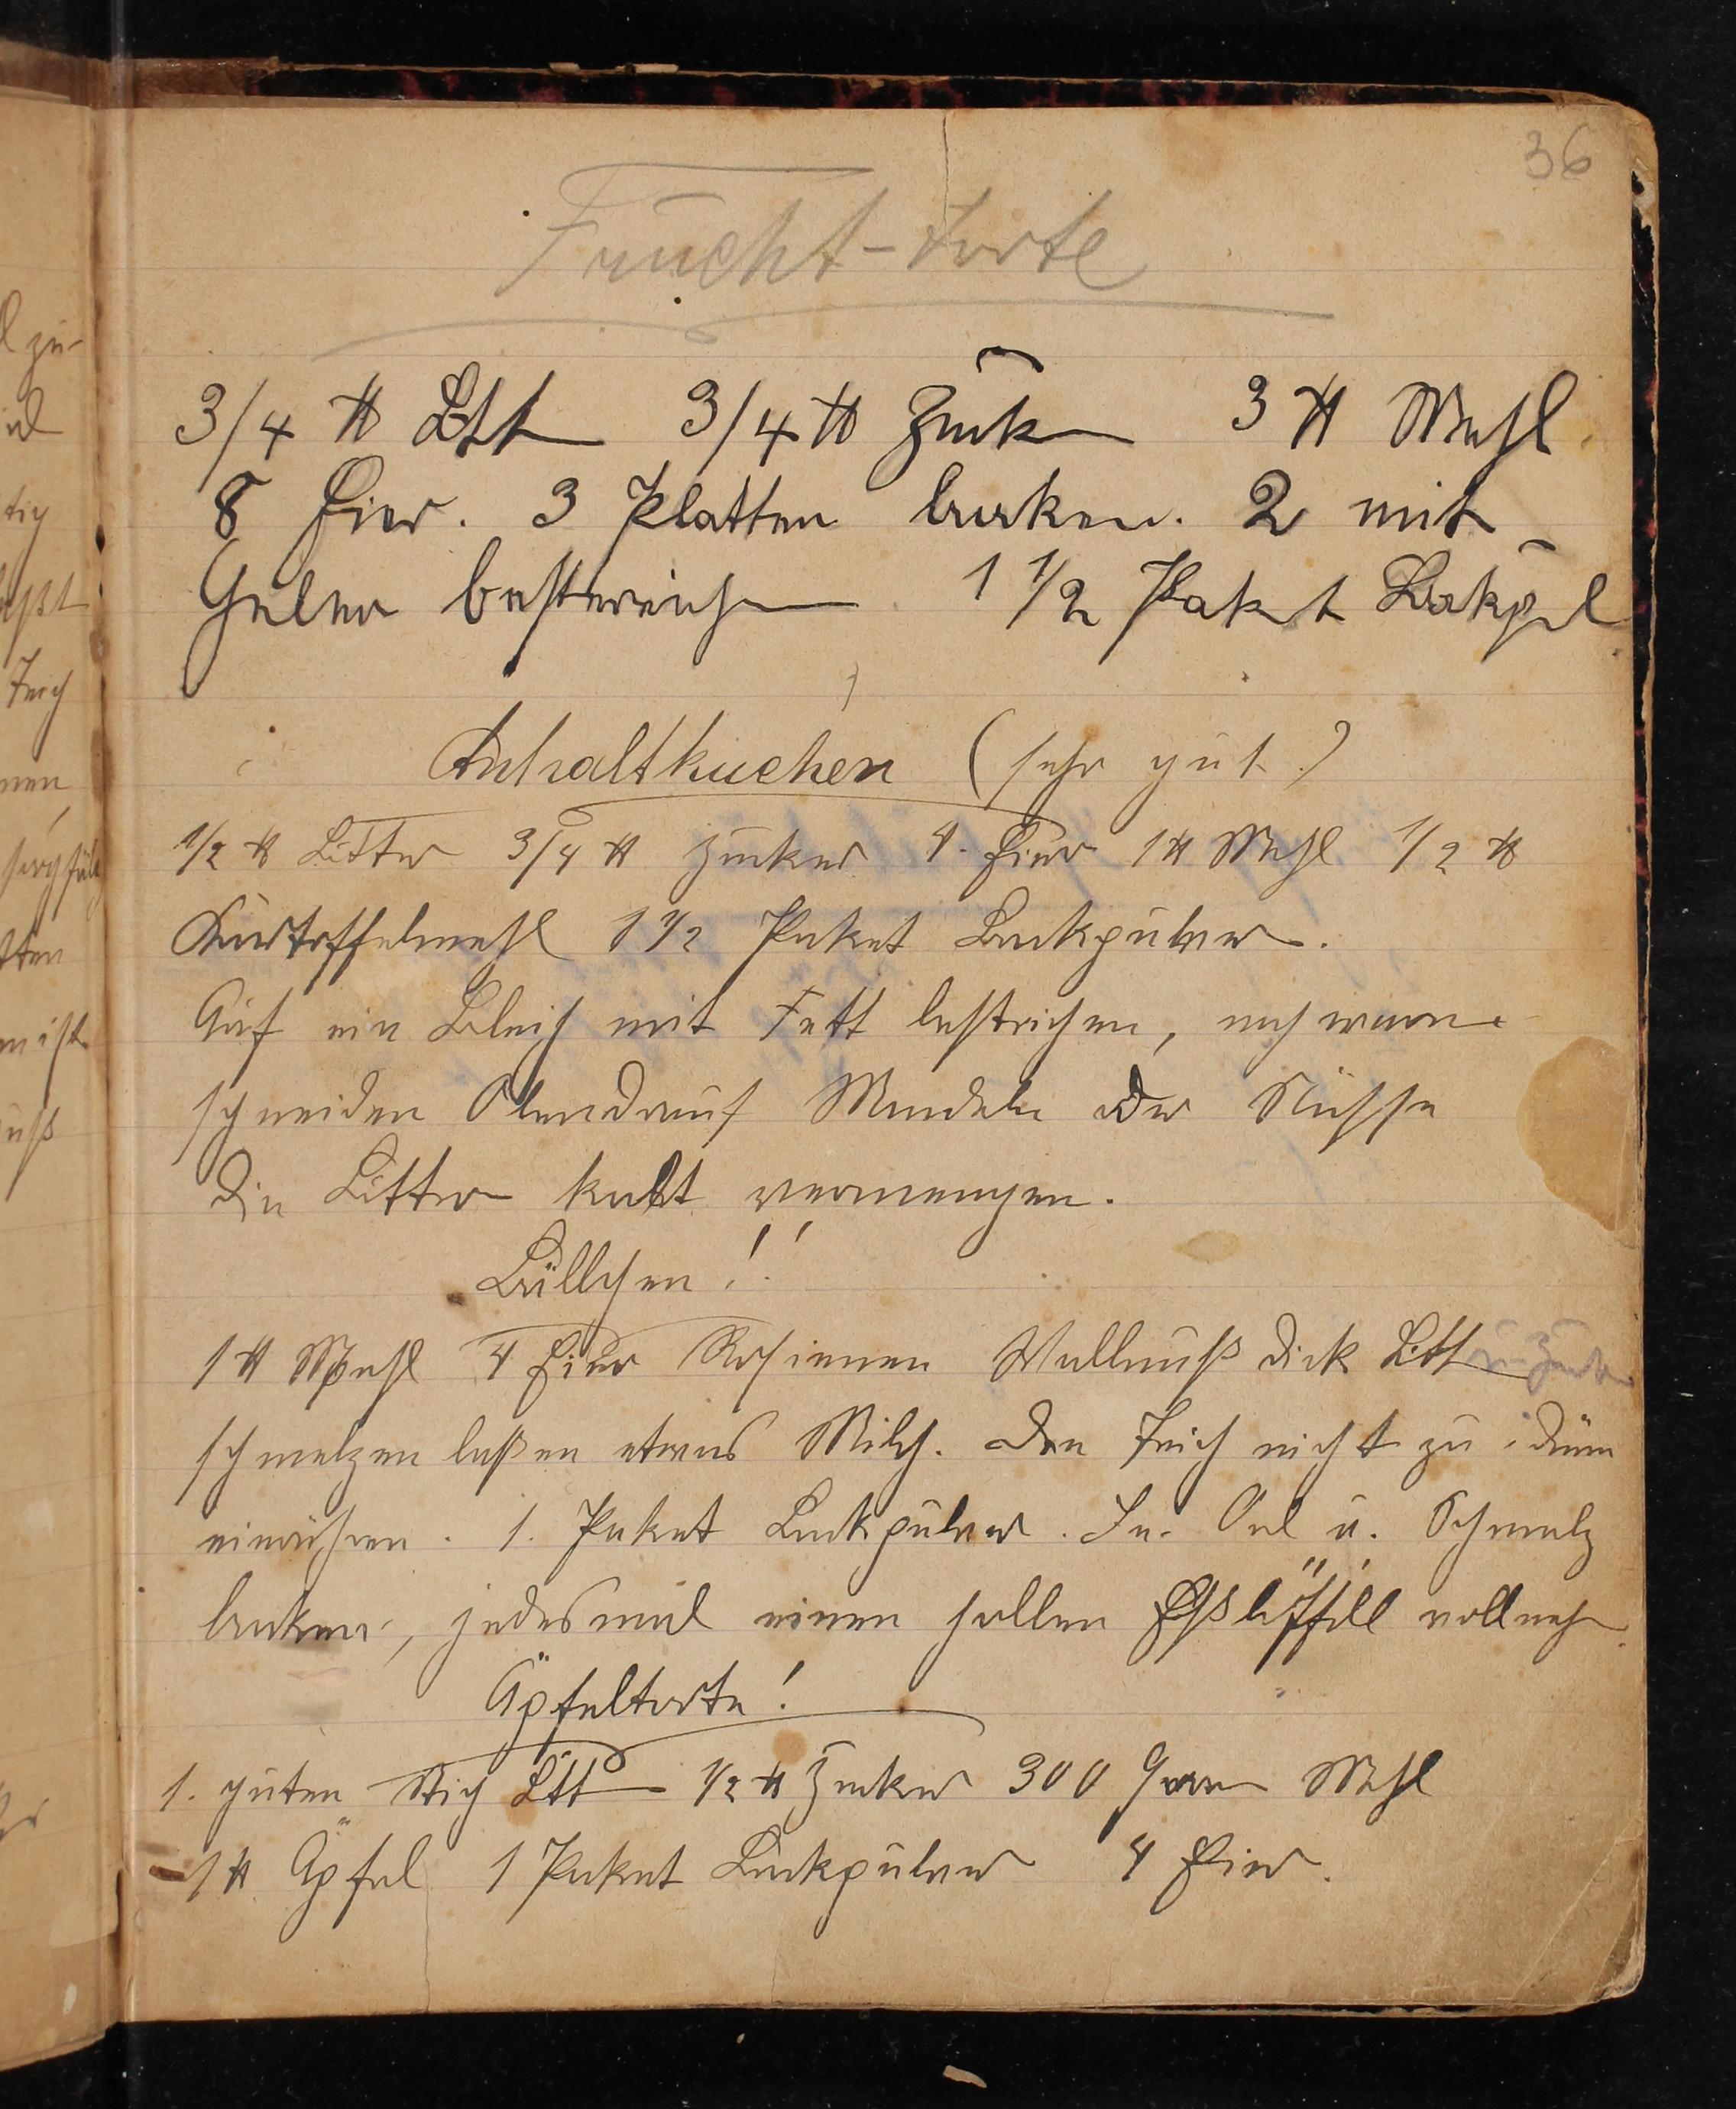 36
Frucht-torte
3/4 ℔ Btt 3/4 ℔ Zuck 3 ℔ Mehl
8 Eier. 3 Platten backen. 2 mit
Gelee bestreich 1 1/2 Paket Bakpul
Anhaltkuchen (sehr gut)
1/2 ℔ Butter 3/4 ℔ Zucker 4. Eier 1 ℔ Mehl 1/2 ℔
Kartoffelmehl 1 1/2 Paket Backpulver.
Auf ein Blech mit Fett bestrichen, noch warm
schneiden Obendrauf Mandeln oder Nüsse
die Butter kalt vermengen.
Bällchen!!
1 ℔ Mehl 4 Eier Rosienen Wallnuß dick Btt u Zuck
schmelzen laßen etwas Milch. den Teich nicht zu dünn
einrühren. 1. Paket Backpulver. In Oel u. Schmalz
backen, jedesmal einen halben Eßlöffell voll neh
Äpfeltorte!
1. guten Stich Btt 1/2 ℔ Zucker 300 Gram Mehl
1 ℔ Äpfel 1 Paket Backpulver 4 Eier.
zu-
tig
Teich
nen
sorgfält
tten